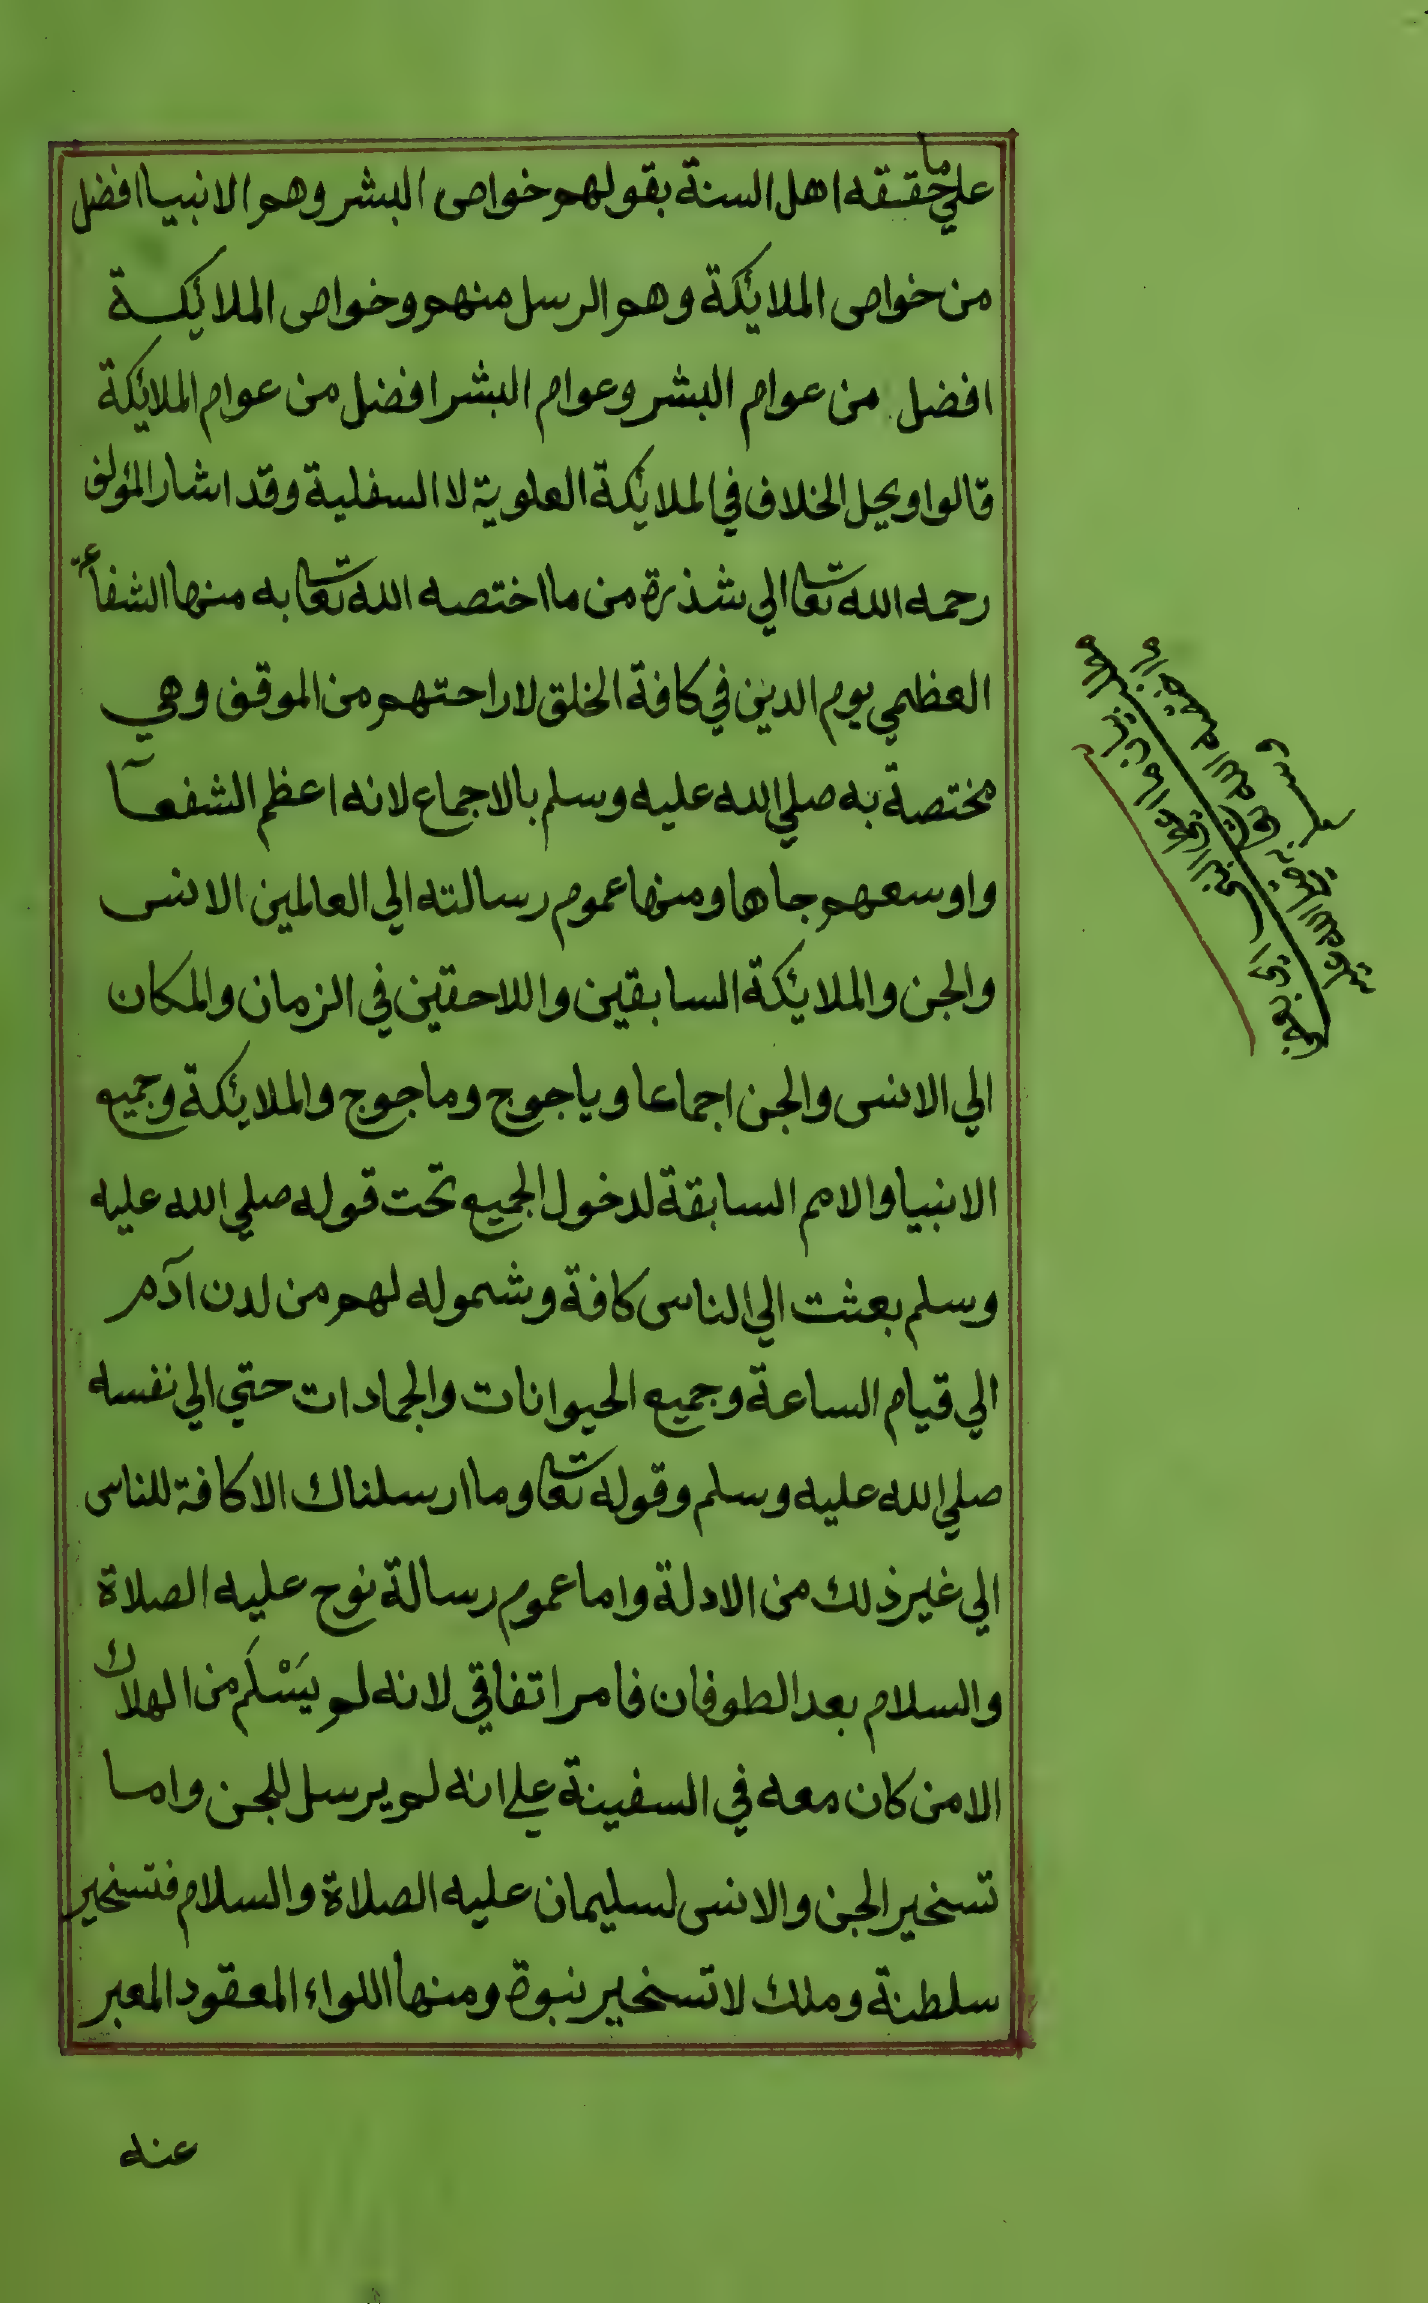 علي ما حققه اهل السنة بقولهم خواص البشر وهم الانبيا افضل
من خواص الملايئكة وهم الرسل منهم وخواص الملائيكة
افضل من عوام البشر وعوام البشر افضل من عوام الملايئكة
قالوا ومحل الخلاف في الملايئكة العلوية لا السفلية وقد اشار المؤلف
رحمه الله تعا الي شذرة من ما اختصه الله تعا به منها الشفاعة
العظمي يوم الدين في كافة الخلق لاراحتهم من الموقف وهي
مختصة به صلي الله عليه وسلم بالاجماع لانه اعظم الشفعآ
واوسعهم جاها ومنها عموم رسالته الي العالمين الانس
والجن والملايئكة السابقين واللاحقين في الزمان والمكان
الي الانس والجن اجماعا وياجوج وماجوج والملايئكة وجميع
الانبيا والامم السابقة لدخول الجميع تحت قوله صلي الله عليه
وسلم بعثت الي الناس كافة وشموله لهم من لدن آدم
الي قيام الساعة وجميع الحيوانات والجمادات حتي الي نفسه
صلي الله عليه وسلم وقوله تعا وما ارسلناك الا كافة للناس
الي غير ذلك من الادلة واما عموم رسالة نوح عليه الصلاة
والسلام بعد الطوفان فامر اتفاقي لانه لم يَسْلَم من الهلاك
الا من كان معه في السفينة علي انه لم يرسل للجن واما
تسخير الجن والانس لسليمان عليه الصلاة والسلام فتسخير
سلطنة وملك لا تسخير نبوة ومنها اللواء المعقود المعبر
عنه